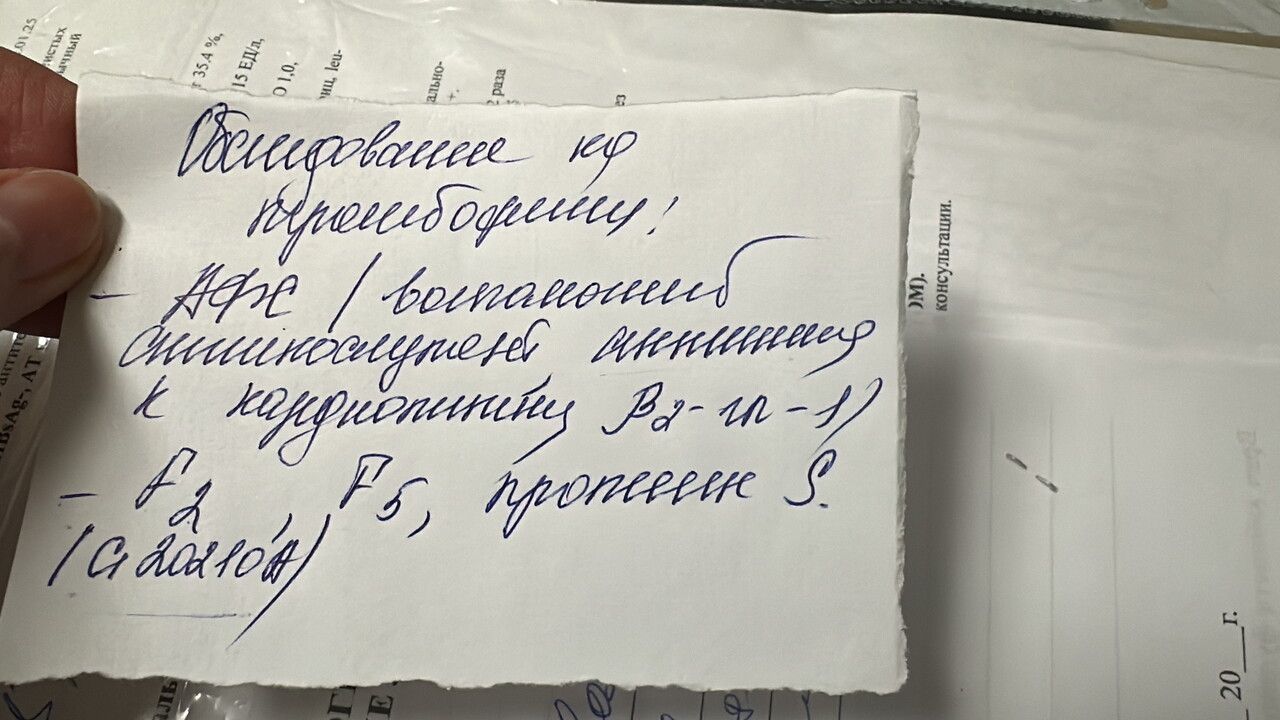 Обследование на
тромбофилии:
- АФС (волчаночный
антикоагулянт, антитела
к кардиолипину, β2-гп-1)
- F2, F5, протеин S.
(G20210A)
01.25
35.4 %,
15 ЕД/л,
O 1,0,
leu-
ально-
2 раза
)М).
консультации.
HBsAg-, АТ
20___г.